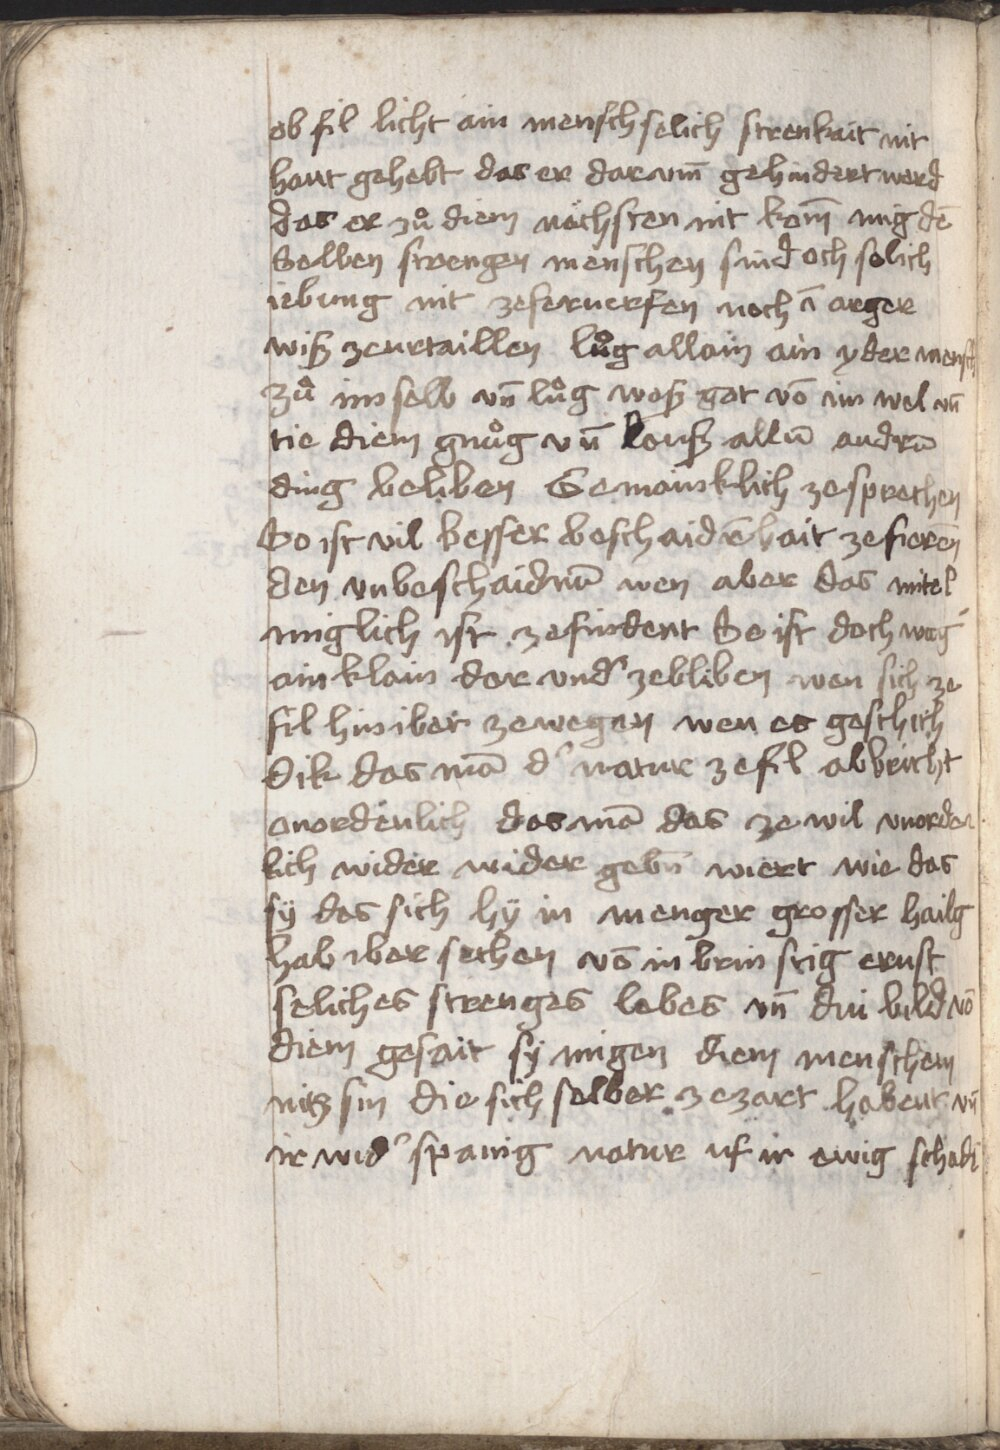 ob fil licht ain mensch selich strenkait nit
hant gehebt das er dar vm̄ gehindert werd
das er zů diem nöchsten nit kom̄ mig dē
Selben strengen menschen sind och solich
iebung nit zeferuerfen noch ī arger
wiß zeurtaillen lůg allain ain yder mensch
zů im selb vn̄ lůg waß got vō im wel vn̄
tie diem gnůg vn̄ lauß allū andrū
ding beliben Gemainklich zesprechen
So ist vil besser beschaidēhait zefierēn
den vnbeschaidnū wen aber das mitel
miglich ist zefindent So ist doch weg
ain klain dar vnd' zebliben wen sich ze
fil hiniber zewegen wen es geschich
dik das mā d' natur zefil abbricht
onordenlich das mā das ze wil vnorden
lich wider wider gebn̄ wiert wie das
sÿ das sich hÿ in menger grosser hailg
hab iber sechen vō inbrinstig ernst
seliches strenges lebes vn̄ dui bild vō
diem gesait sÿ migen diem menschem
nitz sin die sich selber ze zart habent vn̄
ir wid' spanig natur uf ir ewig schadē